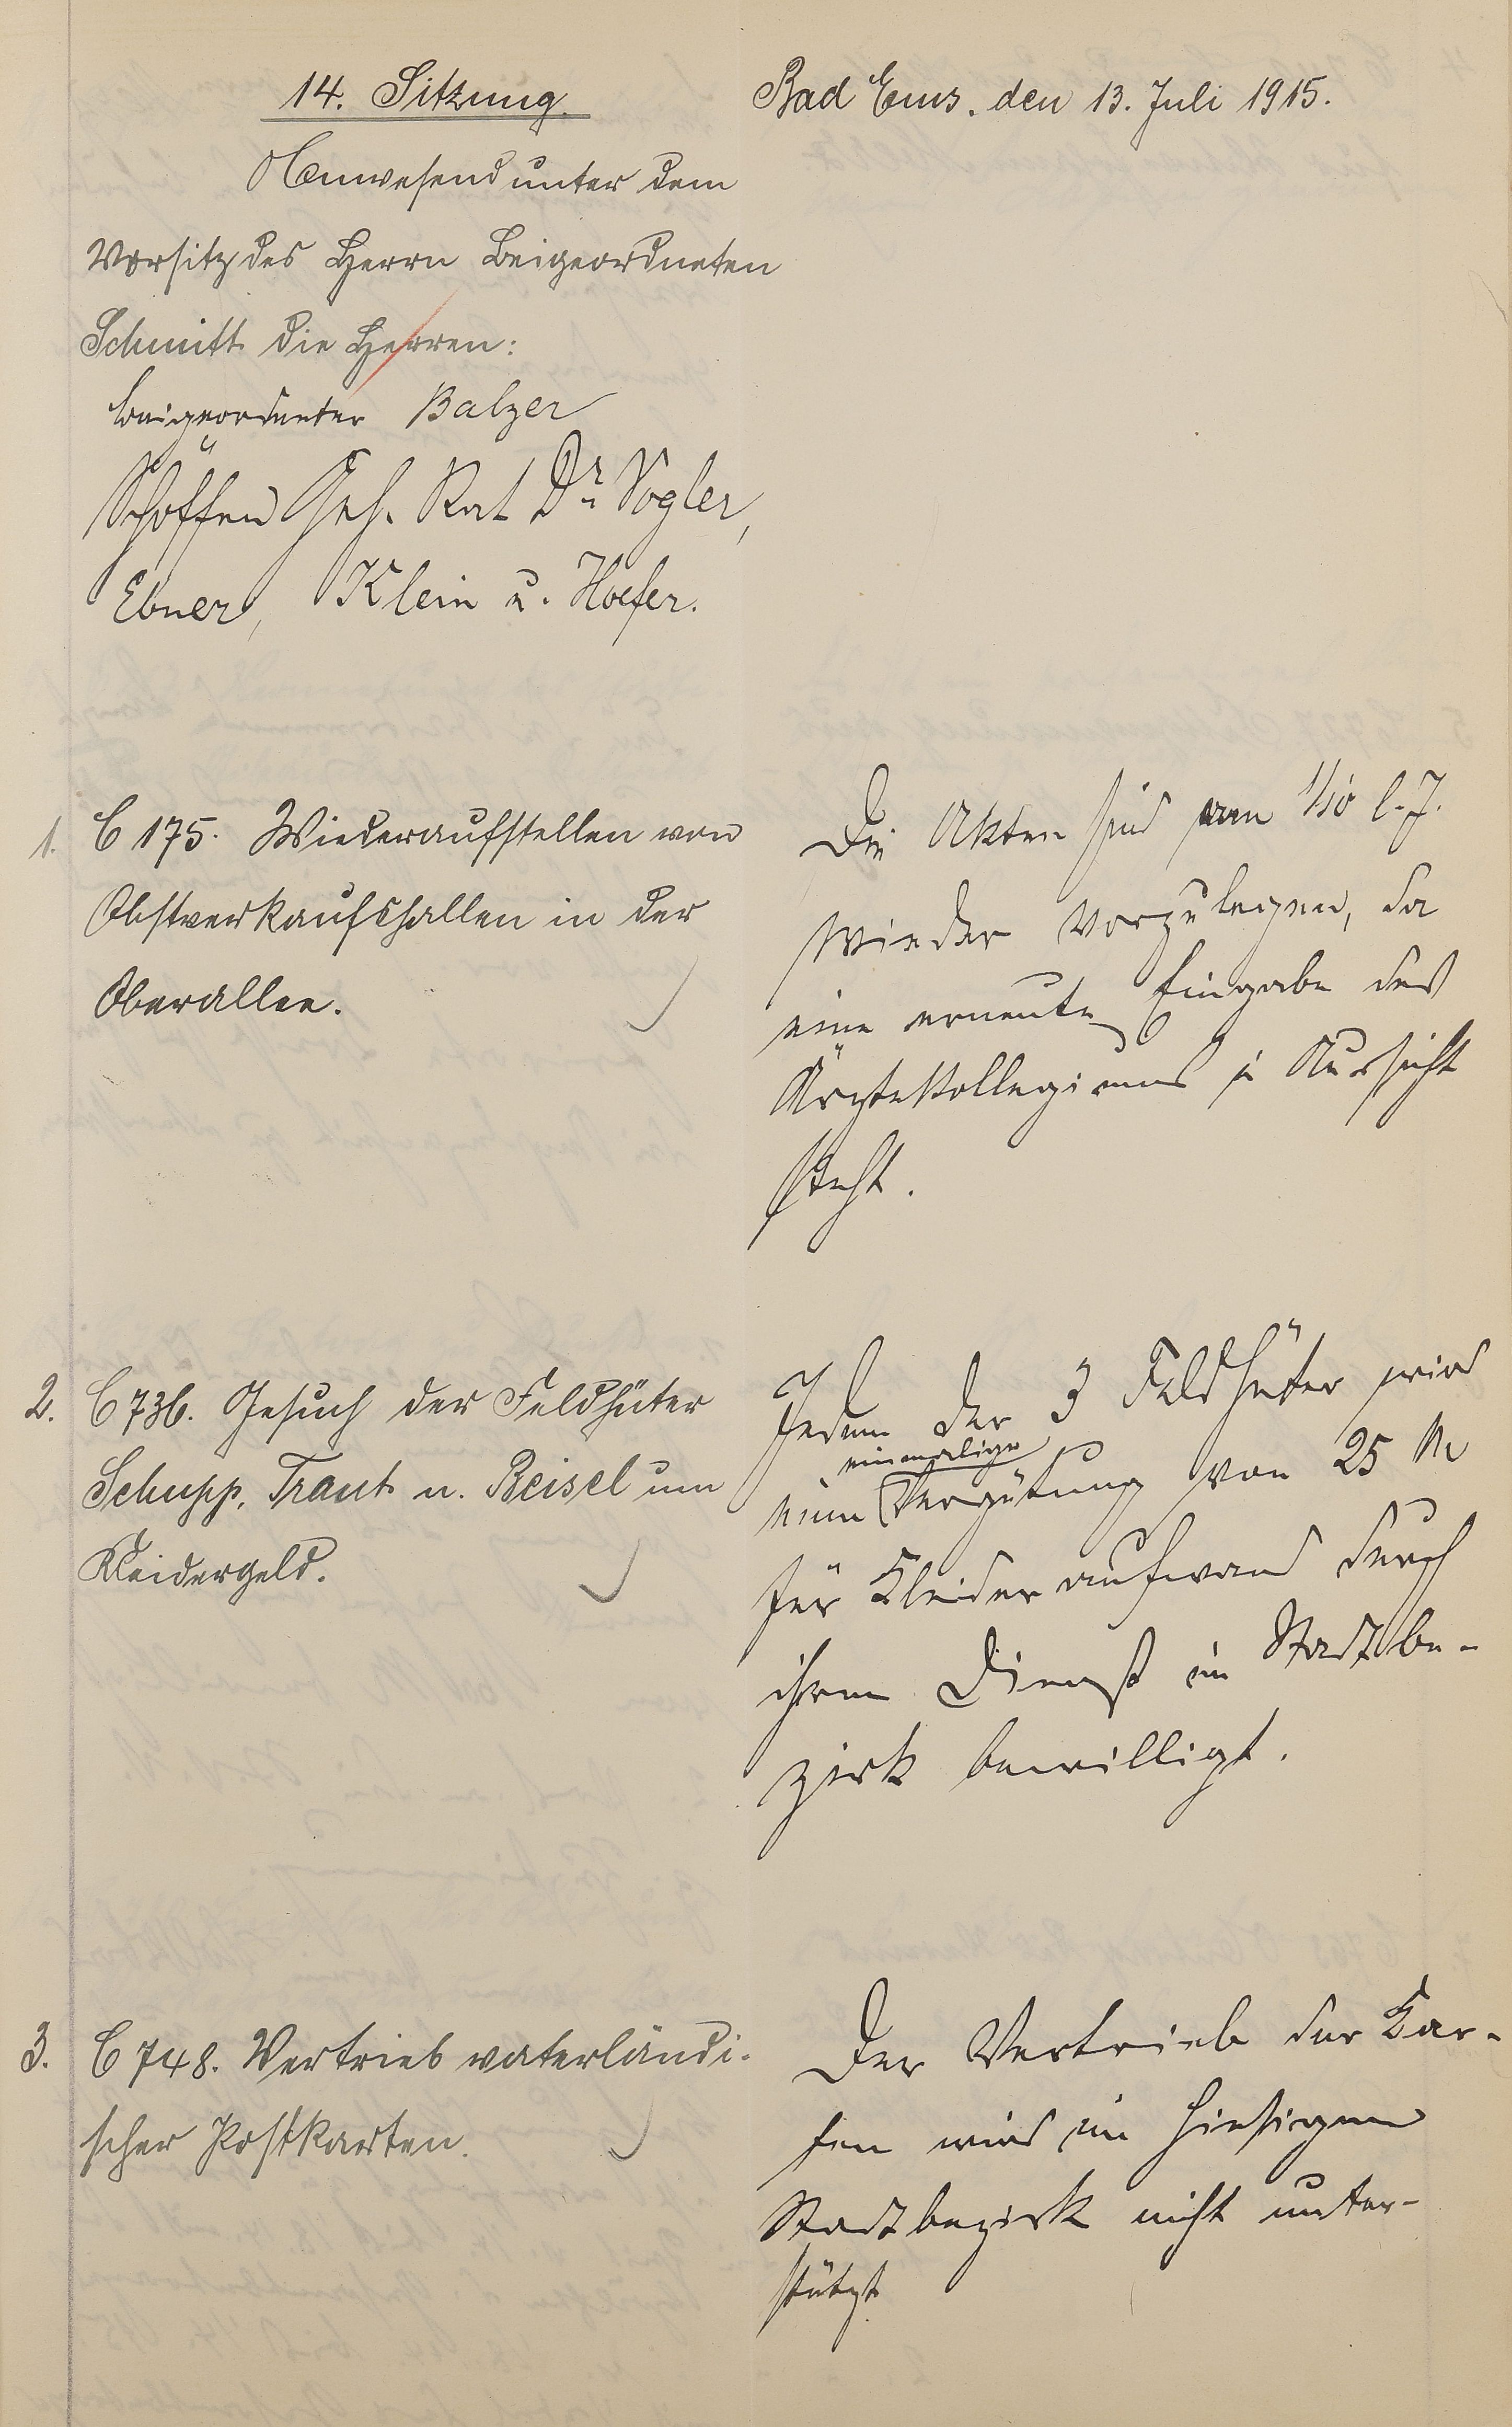 14. Sitzung.
Bad Ems, den 13. Juli 1915.
Anwesend unter dem
Vorsitz des Herrn Beigeordneten
Schmitt die Herren:
Beigeordneter Balzer
Schöffen Geh. Rat Dr. Vogler,
Ebner, Klein u. Hoefer.
1. C 175. Wiederaufstellen von
Obstverkaufshallen in der
Oberallee.
Die Akten sind am 1/10 l. J.
wieder vorzulegen, da
eine erneute Eingabe des
Ärztekollegiums in Aussicht
steht.
2. C 736. Gesuch der Feldhüter
Schupp, Traut u. Beisel um
Kleidergeld.
Jedem der 3 Feldhüter wird
einmalige
eine Vergütung von 25 M
für Kleideraufwand durch
ihren Dienst im Stadtbe-
zirk bewilligt.
3. C 748. Vertrieb vaterländi-
scher Postkarten.
Der Vertrieb der Kar-
ten wird im hiesigen
Stadtbezirk nicht unter-
stützt